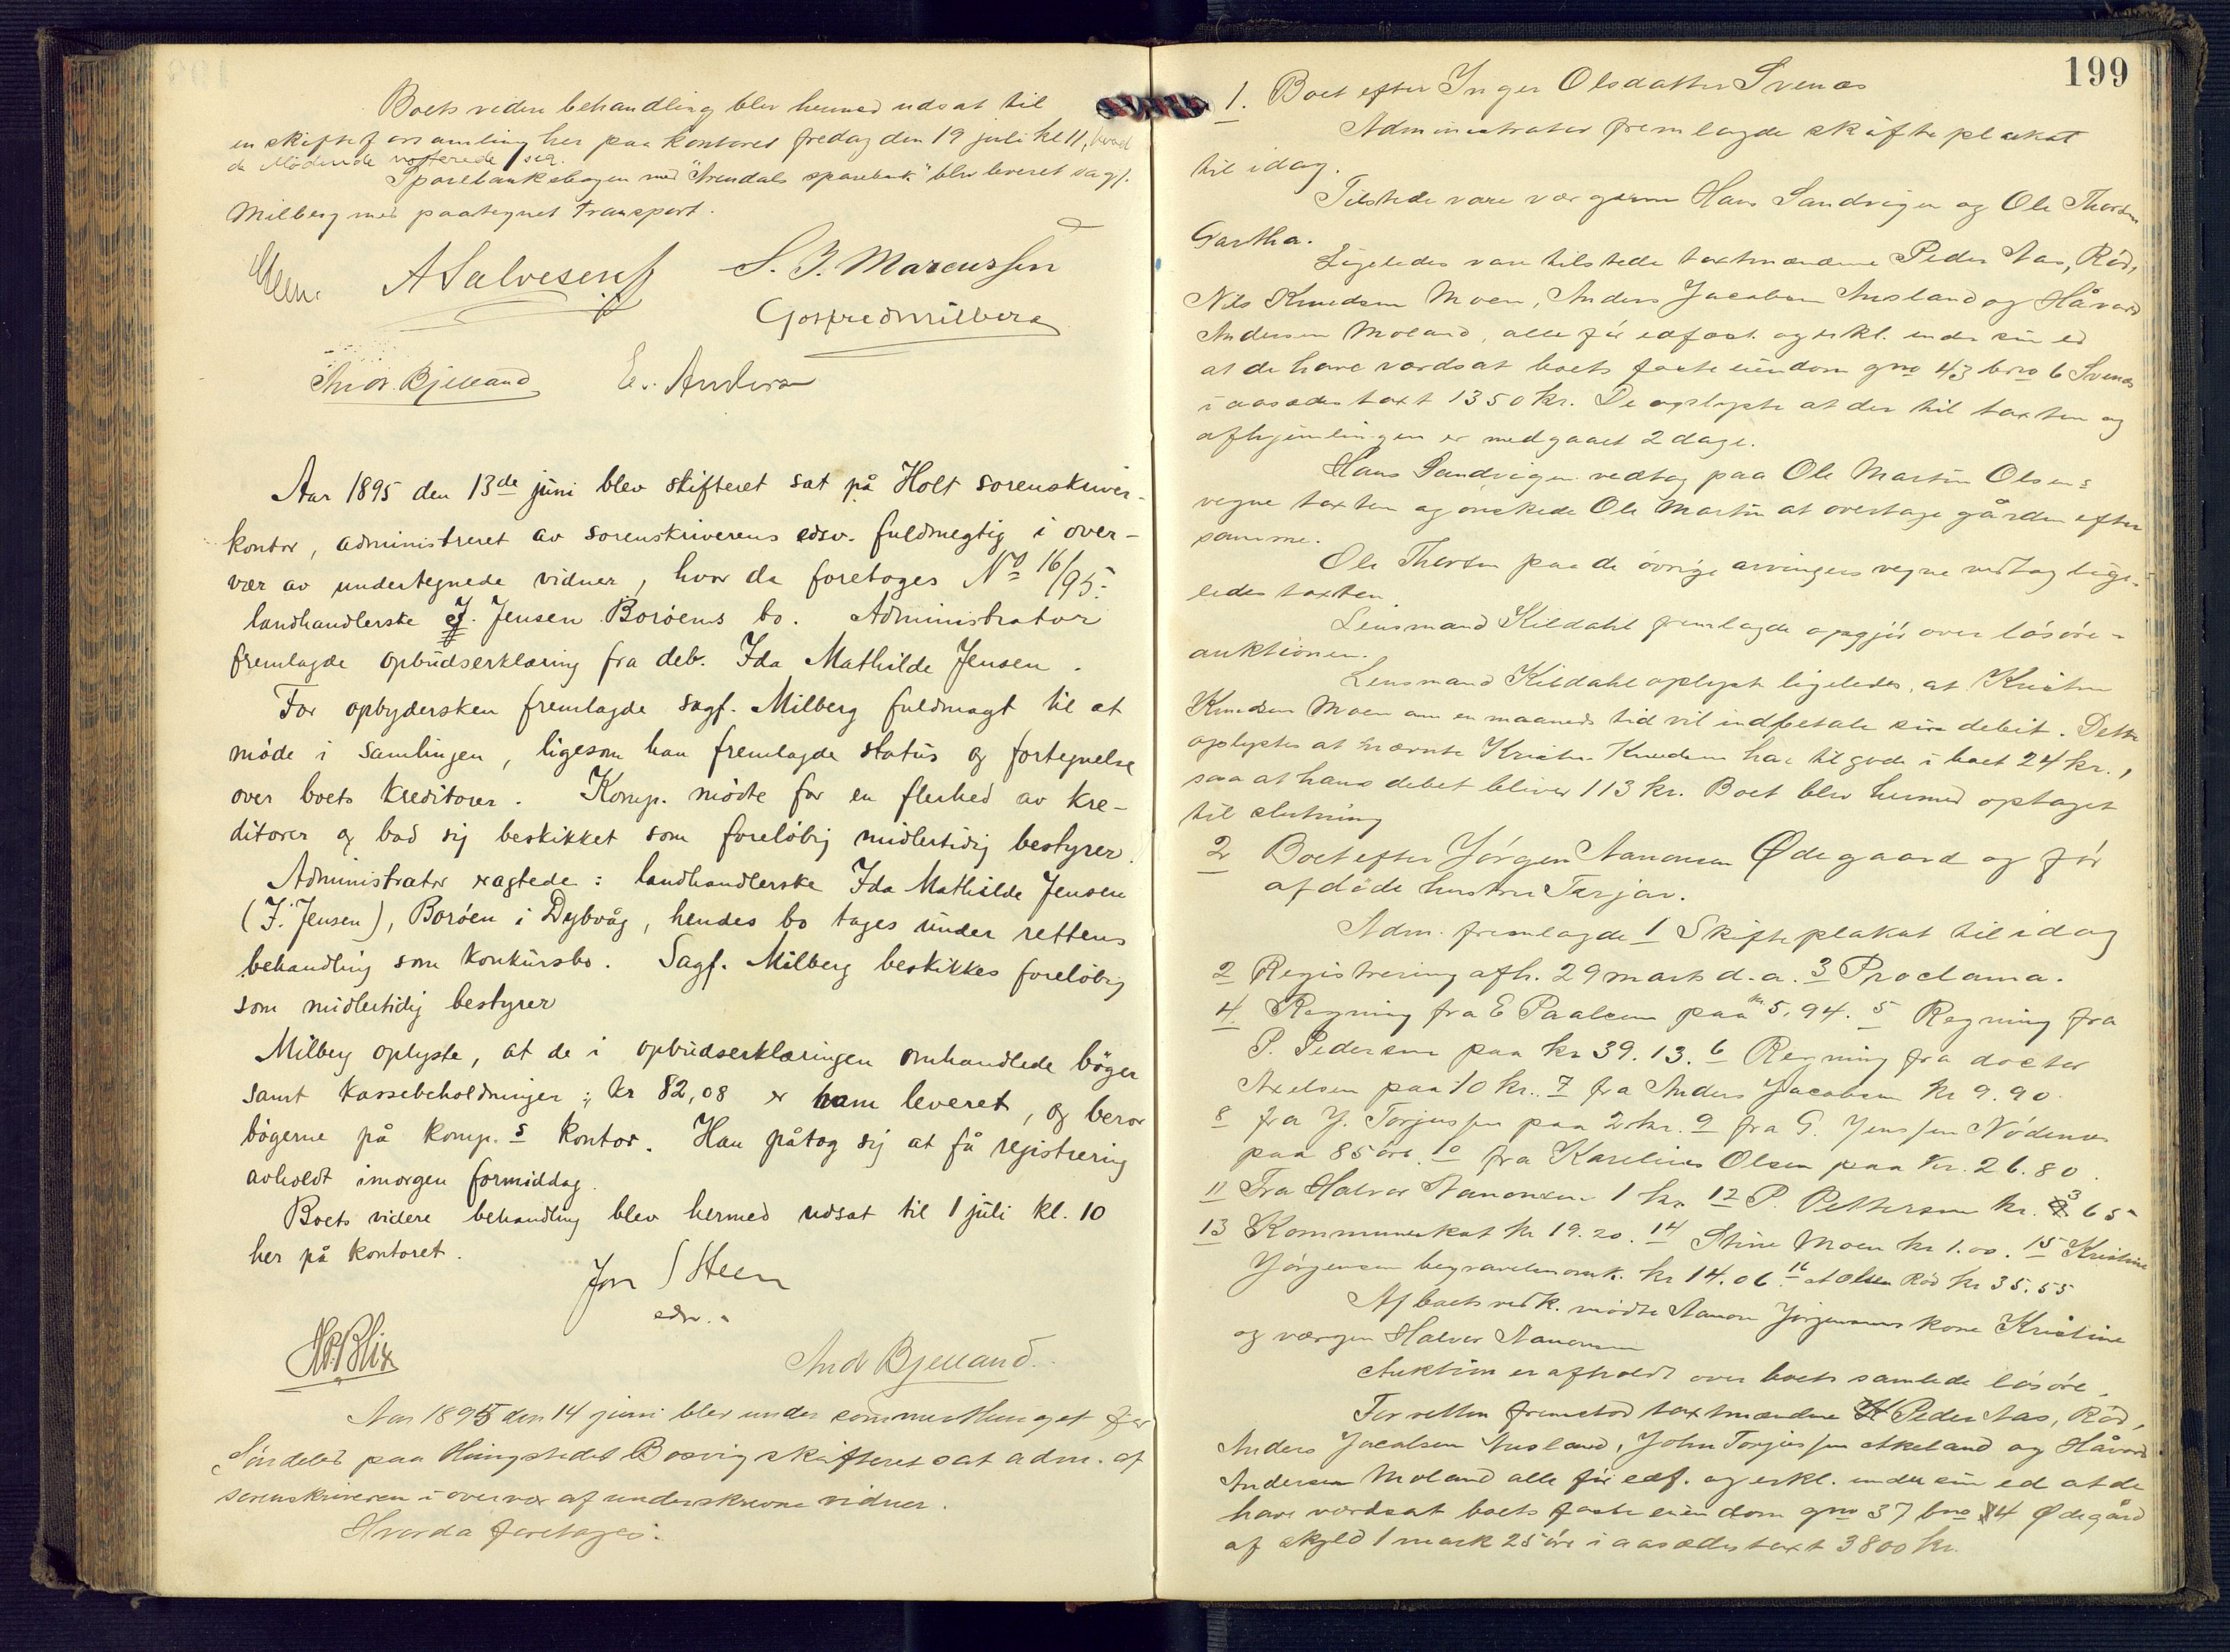 Boets videre behandling blev hermed udsat til
en skifteforsamling her paa kontoret fredag den 19 juli kl 11, hvorved
de Mødende vosterede sig.
Sparebanksbogen med "Arendals sparebank" blev leveret sagf.
Milberg med paategnet Transport.
Steen. ASalvesen S. J. Marcussen
Gotfred Milberg
Andr. Bjelland E. Andersen
Aar 1895 den 13de juni blev skifteret sat på Holt sorenskriver-
kontor, administreret av sorenskriverens edsv. fuldmegtig i over-
vær av undertegnede vidner, hvor da foretoges No 16/95:
landhandlerske J. Jensen Borøens bo. Administrator
fremlagde opbudserklæring fra deb. Ida Mathilde Jensen.
For opbydersken fremlagde sagf. Milberg fuldmagt til at
møde i samlingen, ligesom han fremlagde status og fortegnelse
over boets kreditorer. Komp. mødte for en flerhed av kre-
ditorer og bad sig beskikket som foreløbig midlertidig bestyrer.
Administrator eragtede: landhandlerske Ida Mathilde Jensen
(J. Jensen), Borøen i Dybvåg, hendes bo tages under rettens
behandling som konkursbo. Sagf. Milberg beskikkes foreløbig
som midlertidig bestyrer
Milberg oplyste, at de i opbudserklæringen omhandlede bøger
samt kassebeholdninger: kr 82,08 er ham leveret, og beror
bøgerne på komp.s kontor. Han påtog sig at få registrering
avholdt imorgen formiddag.
Boets videre behandling blev hermed udsat til 1 juli kl. 10
her på kontoret.
Jon Steen
edsv.
Blix Andr Bjelland.
Aar 1895 den 14 juni blev under sommerthinget for
Søndeled paa thingstedet Bosvig skifteret sat adm. af
sorenskriveren i overvær af underskrevne vidner.
Hvorda foretages:
199
1. Boet efter Inger Olsdatter Svenæs
Administrator fremlagde skifteplakat
til idag.
Tilstede vare værgerne Hans Sandvigen og Ole Thorsen
Gartha.
Ligeledes vare tilstede taxtmændene Peder Aas, Rød,
Nils Knudsen Moen, Anders Jacobsen Ausland og Håvard
Andersen Moland, alle før edfæst. og erkl. under sin ed
at de have værdsat boets faste eiendom gno 43 brno 6 Svenæs
i aasædestaxt 1350 kr. De oplyste at der til taxten og
afhjemlingen er medgaaet 2 dage.
Hans Sandvigen vedtog paa Ole Martin Olsens
vegne taxten og ønskede Ole Martin at overtage gården efter
samme.
Ole Thorsen paa de øvrige arvingers vegne vedtog lige-
ledes taxten
Lensmand Kildahl fremlagde opgjør over løsøre-
auktionen.
Lensmand Kildahl oplyste ligeledes, at Kristen
Knudsen Moen om en maaneds tid vil indbetale sin debit. Dette
oplystes at nævnte Kristen Knudsen har tilgode i boet 24 kr.,
saa at hans debet bliver 113 kr. Boet blev hermed optaget
til slutning
2 Boet efter Jørgen Aanonsen Ødegaard og før
afdøde hustru Tarjer.
Adm. fremlagde 1 Skifteplakat til idag
2 Registrering afh. 29 marts d.a. 3 Proclama.
4. Regning fra E Paalsen paa kr 5,94. 5 Regning fra
P. Pedersen paa kr 39.13. 6 Regning fra doctor
Axelsen paa 10 kr. 7 fra Anders Jacobsen kr 9.90.
8 fra J. Torjussen paa 2 kr. 9 fra G. Jenssen Nødenes
paa 85 øre. 10 fra Karelius Olsen paa kr. 26.80.
11 Fra Halvor Aanonsen 1 kr. 12 P. Pettersen kr. 3 65
13 Kommuneskat kr 19.20. 14 Stine Moen kr 1.00. 15 Kristine
Jørgensen begravelsesomk. kr 14.06 16 at Olsen Rød kr 35.55
Af boets vedk. mødte Aanon Jørgensens kone Kristine
og værgen Halvor Aanonsen
Auktion er afholdt over boets samlede løsøre.
For retten fremstod taxtmændene Peder Aas, Rød,
Anders Jacobsen Ausland, John Torjussen Akeland og Håvard
Andersen Moland alle før edf. og erkl. under sin ed at de
have værdsat boets faste eiendom gno 37 bno 4 Ødegård
af skyld 1 mark 25 øre i aasædestaxt 3800 kr.